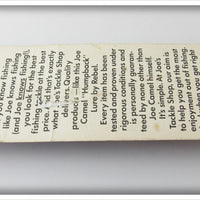 you know fishing
like Joe knows fishing
(and Joe knows fishing),
you look for the best
fishing tackle at the best
price. And that's exactly
what Joe's Tackle Shop
delivers. Quality
products—like this Joe
Camel "Humpback"
Lure by Rebel.
Every item has been
tested and proven under
rigorous conditions and
is personally guaran-
teed by none other than
Joe Camel himself.
It's simple. At Joe's
Tackle Shop, our aim is
to help you get the most
enjoyment
when you get right